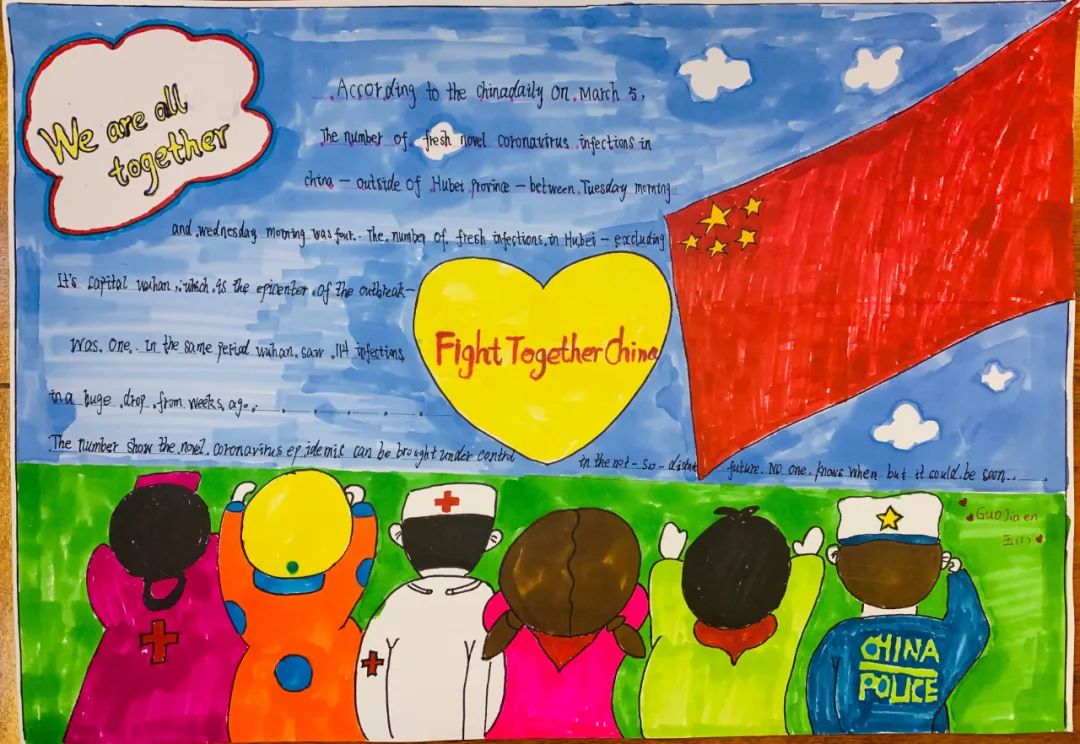 We are all
together
According to the chinadaily on March 5,
The number of fresh novel coronavirus infections in
china - outside of Hubei province - between Tuesday morning
and wednesday morning was four. The number of fresh infections in Hubei - excluding
It's capital wuhan, which is the epicenter of the outbreak-
was one. in the same period wuhan saw 114 infections
in a huge drop from weeks ago.
The number show the novel coronavirus epidemic can be brought under control in the not-so-distant future. No one knows when but it could be soon......
Fight Together China
GuoJiaen
五(1)
CHINA
POLICE